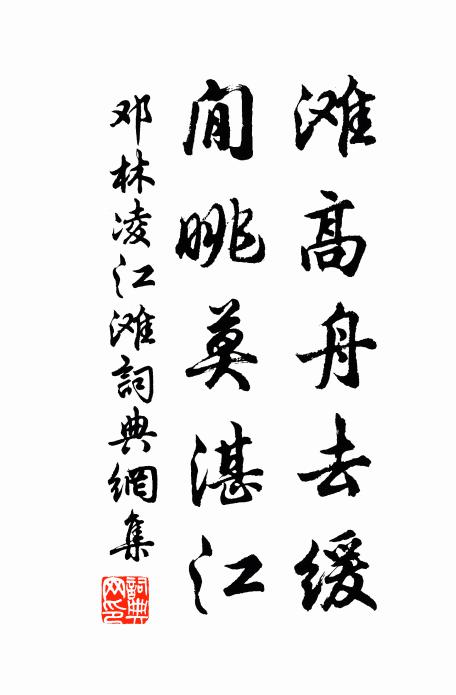 滩高舟去缓
閒眺莫湛江
邓林凌江滩詞典網集
詞典网印